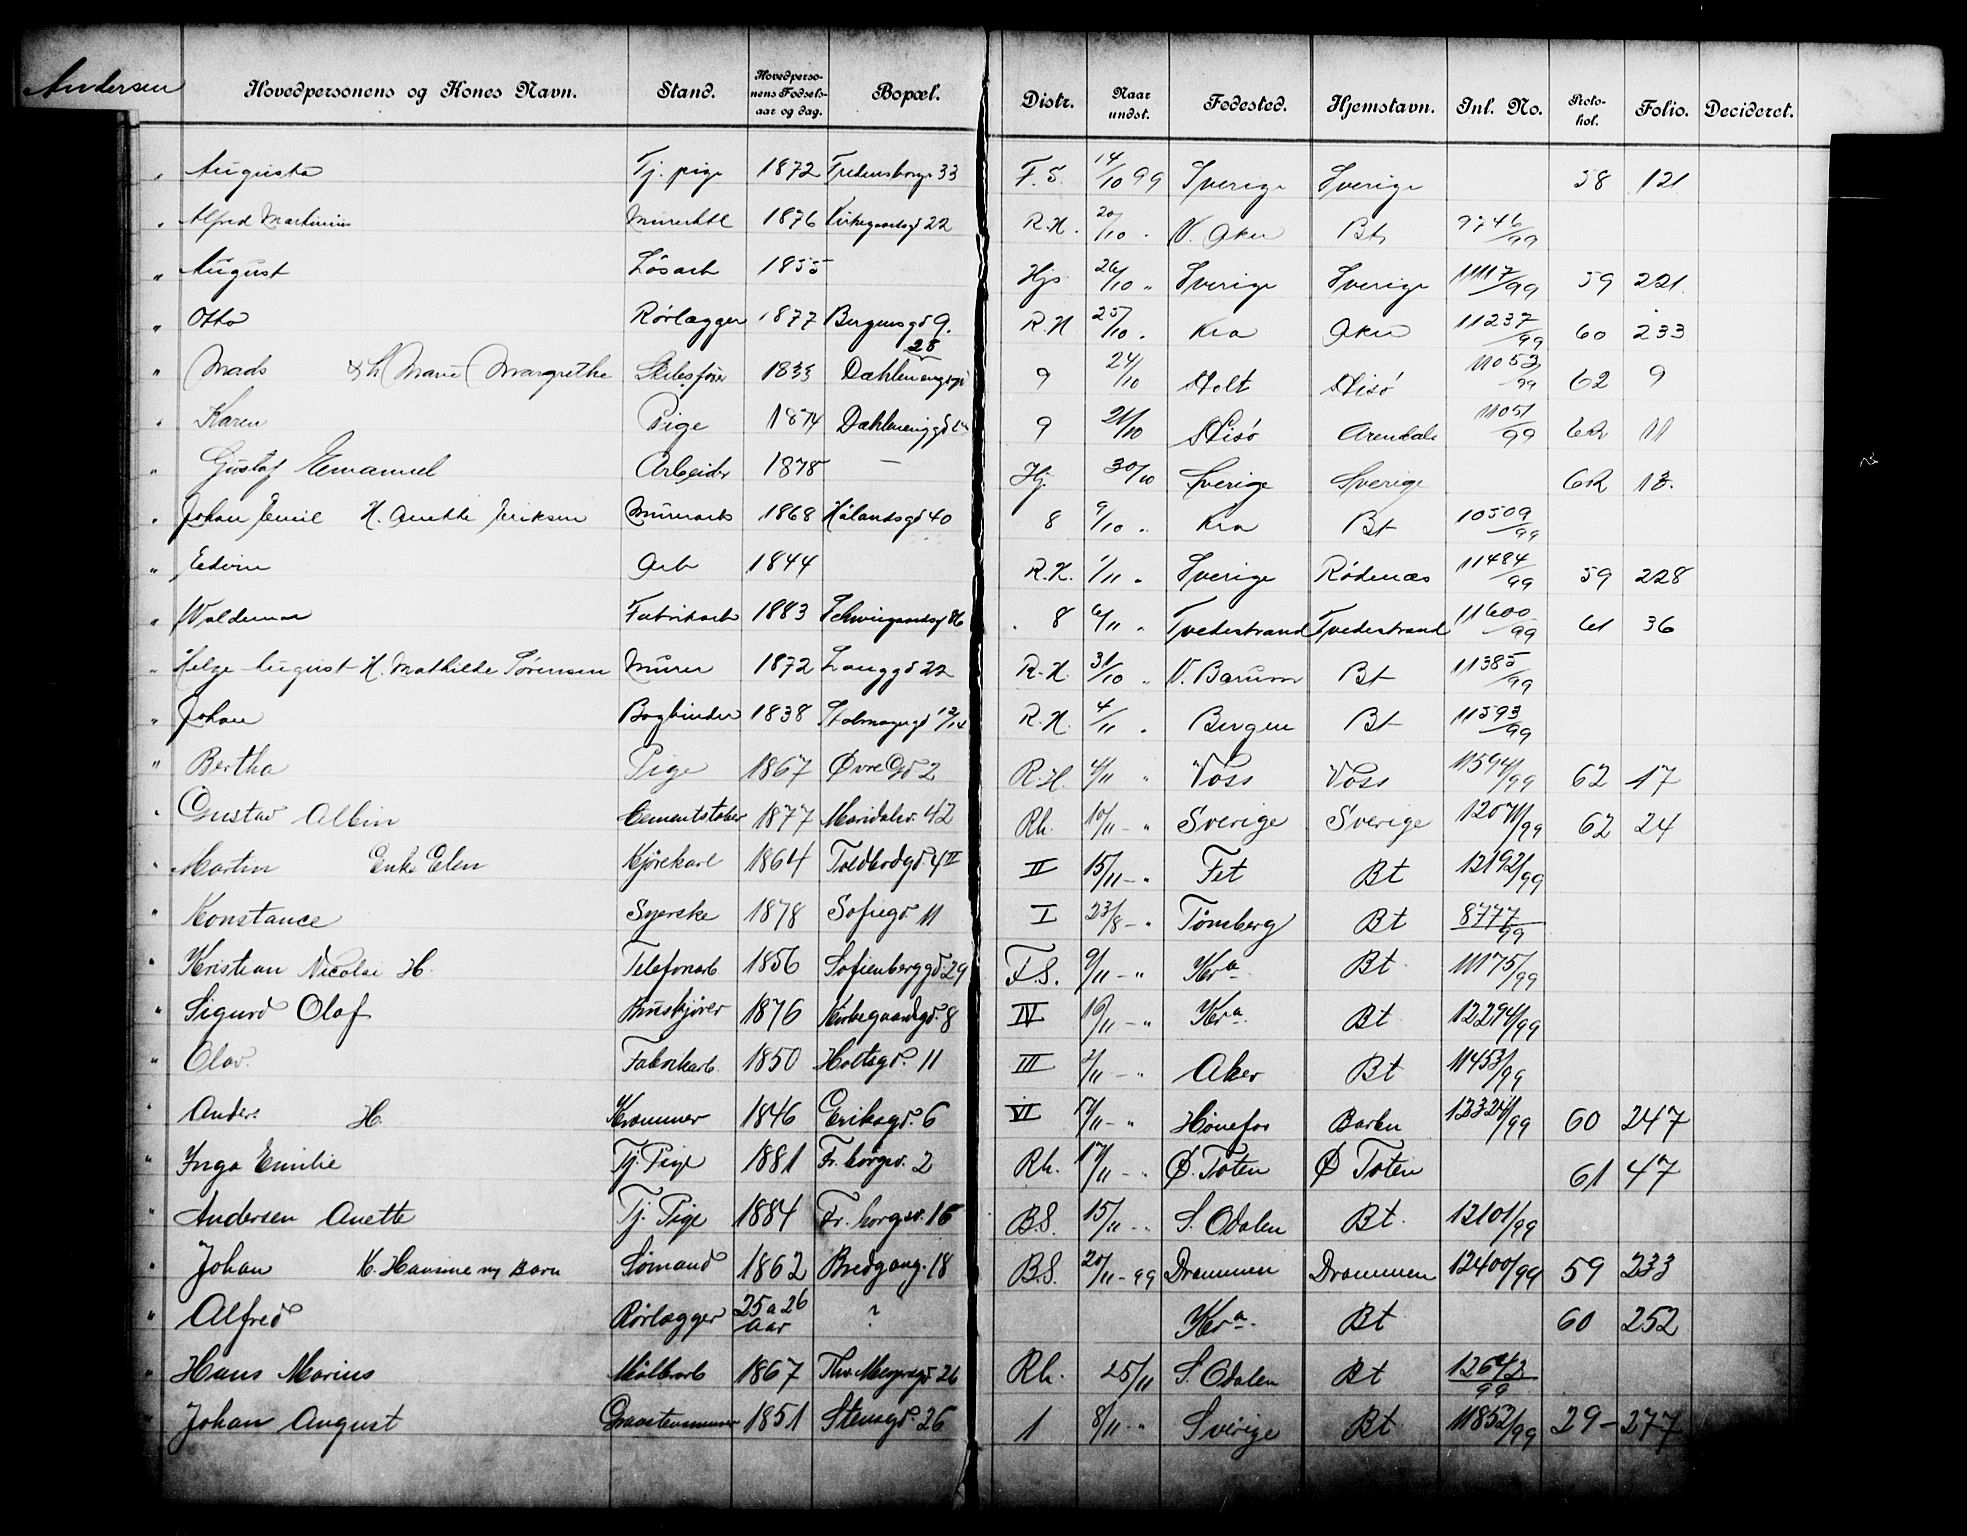 Andersen Hovedpersonens og Kones Navn. Stand. Hovedpersonens Fødselsaar og dag. Bopæl. Distr. Naar undst. Fødested. Hjemstavn. Inl. No. Protokol. Folio. Decideret.
" Augusta Tj. pige 1872 33 F. S. 14/10 99 Sverige Sverige 58 121
" Alfred 1876 22 R.H. 20/10 " V. Aker Bt 9746/99
" August Løsarb 1855 Hjs 26/10 " Sverige Sverige 11117/99 59 221.
" Otto Rørlægger 1877 Bergensgd 9. R.H 25/10 " Kra Aker 11237/99 60 233
" Mads Marie Margrethe 1833 28 9 24/10 Holt 11053/99 62 9
" Karen Pige 1874 9 24/10 Arendal 11051/99 62 11
" Gustaf Emanuel Arbeider 1878 — Hj. 30/10 Sverige Sverige 62 13.
" Johan Emil H. Anette Eriksen Murerarb 1868 Hålandsgd 40 8 9/10 " Kra Bt 10509/99
" Edvin Arb 1844 R.H. 1/11 " Sverige Rødenæs 11484/99 59 228
" Waldemar Fabrikarb 1883 Schweigaardsgd 86 8 6/11 " Tvedestrand Tvedestrand 11600/99 61 36
" Helge August H. Mathilde Sørensen Murer 1872 Langgd 22 R.H. 31/10 " V. Bærum Bt 11385/99
" Johan Bogbinder 1838 12/14 R.H. 4/11 " Bergen Bt 11593/99
" Bertha Pige 1867 Øvre Gd 2 R.H. 4/11 " Voss Voss 11594/99 62 17
" Gustav Albin Cementstøber 1877 Maridalsv. 42 Rh. 10/11 - " Sverige Sverige 12071/99 62 24
" Martin Enke Elen Kjørekarl 1864 Toldbodgd. 4 II II 15/11 - " Fet Bt 12192/99
" Konstance Syerske 1878 Sofiegd. 11 I 23/8 - " Tønsberg Bt 8777/99
" Kristian Nicolai H. Telefonarb 1856 Sofienberggd. 29 F.S. 9/11 - " Kra. Bt 11175/99
" Sigurd Olaf Bruskjører 1876 Kirkegaardsgd. 8 IV 16/11 - " Kra. Bt 12294/99
" Olav. Fabrikarb. 1850 Holtegd. 11 III 2/11 - " Aker Bt 11453/99
" Anders H. Kræmmer 1846 Eriksgd. 6 VI 17/11 - " Hønefos 12324/99 60 247
" Inga Emilie Tj. Pige 1881 Fr. borgv. 2 Rh. 17/11 - " Ø. Toten Ø Toten 61 47
" Andersen Anette Tj. Pige 1884 Fr. borgv. 16 B.S. 15/11 - " S. Odalen Bt. 12101/99
" Johan K. Hansine og Barn Sømand 1862 Bredgang. 18 B.S. 20/11 - 99 Drammen Drammen 12400/99 59 233
" Alfred Rørlægger 25 a 26 Aar ? Kra. Bt 60 252
" Hans Marius 1867 Thv. Meyersgd 26 Rh. 25/11 S. Odalen Bt 12642/99
" Johan August 1851 Stensgd. 26 1 8/11 - " Sverige Bt 11852/99 29 - 277